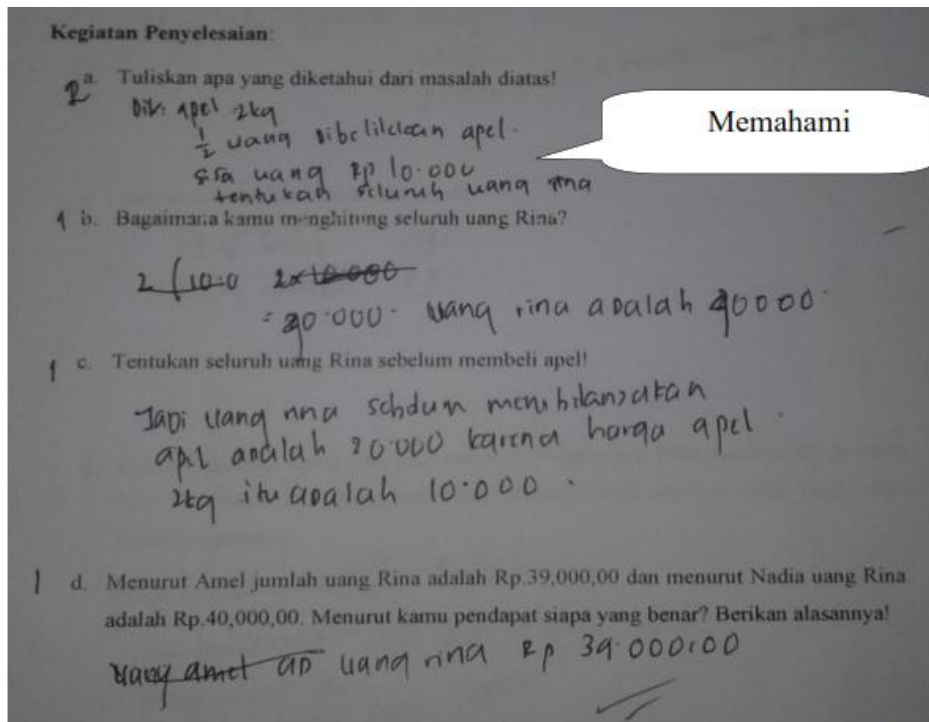 Kegiatan Penyelesaian:
2 a. Tuliskan apa yang diketahui dari masalah diatas!
Dik: apel 2kg
1/2 uang dibelikan apel.
sisa uang Rp 10.000
tentukan seluruh uang rina
Memahami
1 b. Bagaimana kamu menghitung seluruh uang Rina?
2 (10.0 2x10.000
= 20.000. uang rina adalah 20000.
1 c. Tentukan seluruh uang Rina sebelum membeli apel!
Jadi uang rina
apel adalah 20.000 karena harga apel.
2kg itu adalah 10.000.
1 d. Menurut Amel jumlah uang Rina adalah Rp.39,000,00 dan menurut Nadia uang Rina
adalah Rp.40,000,00. Menurut kamu pendapat siapa yang benar? Berikan alasannya!
uang amel ad uang rina Rp 39.000,00